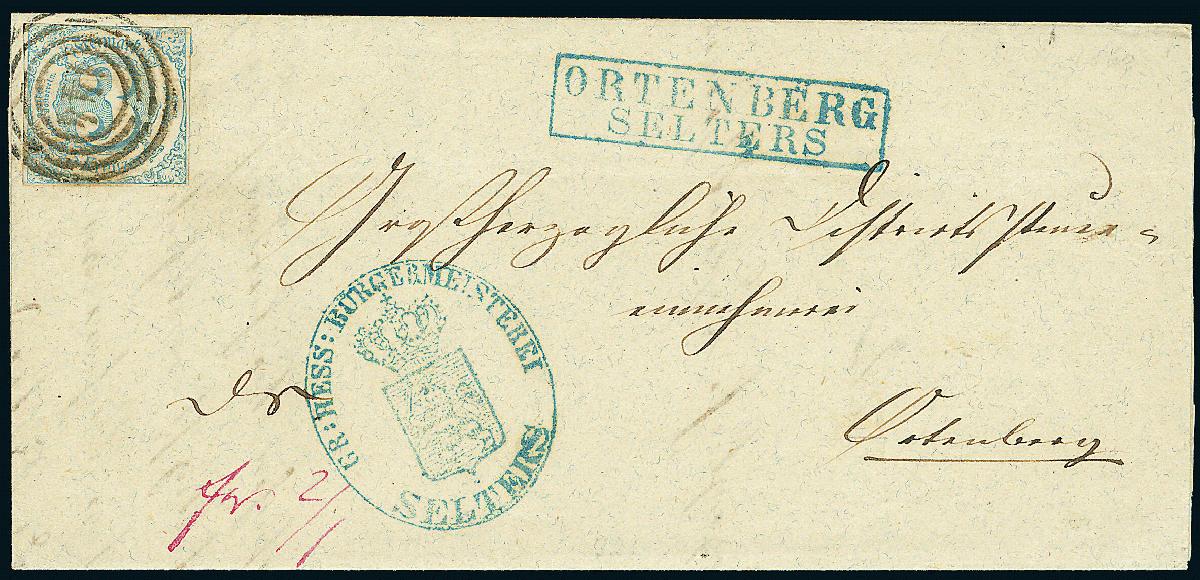 ORTENBERG
SELTERS
Großherzogliche Districts steuer=
einnehmerei
GR: HESS: BÜRGERMEISTEREI
SELTERS
Ortenberg
fr. 2/.